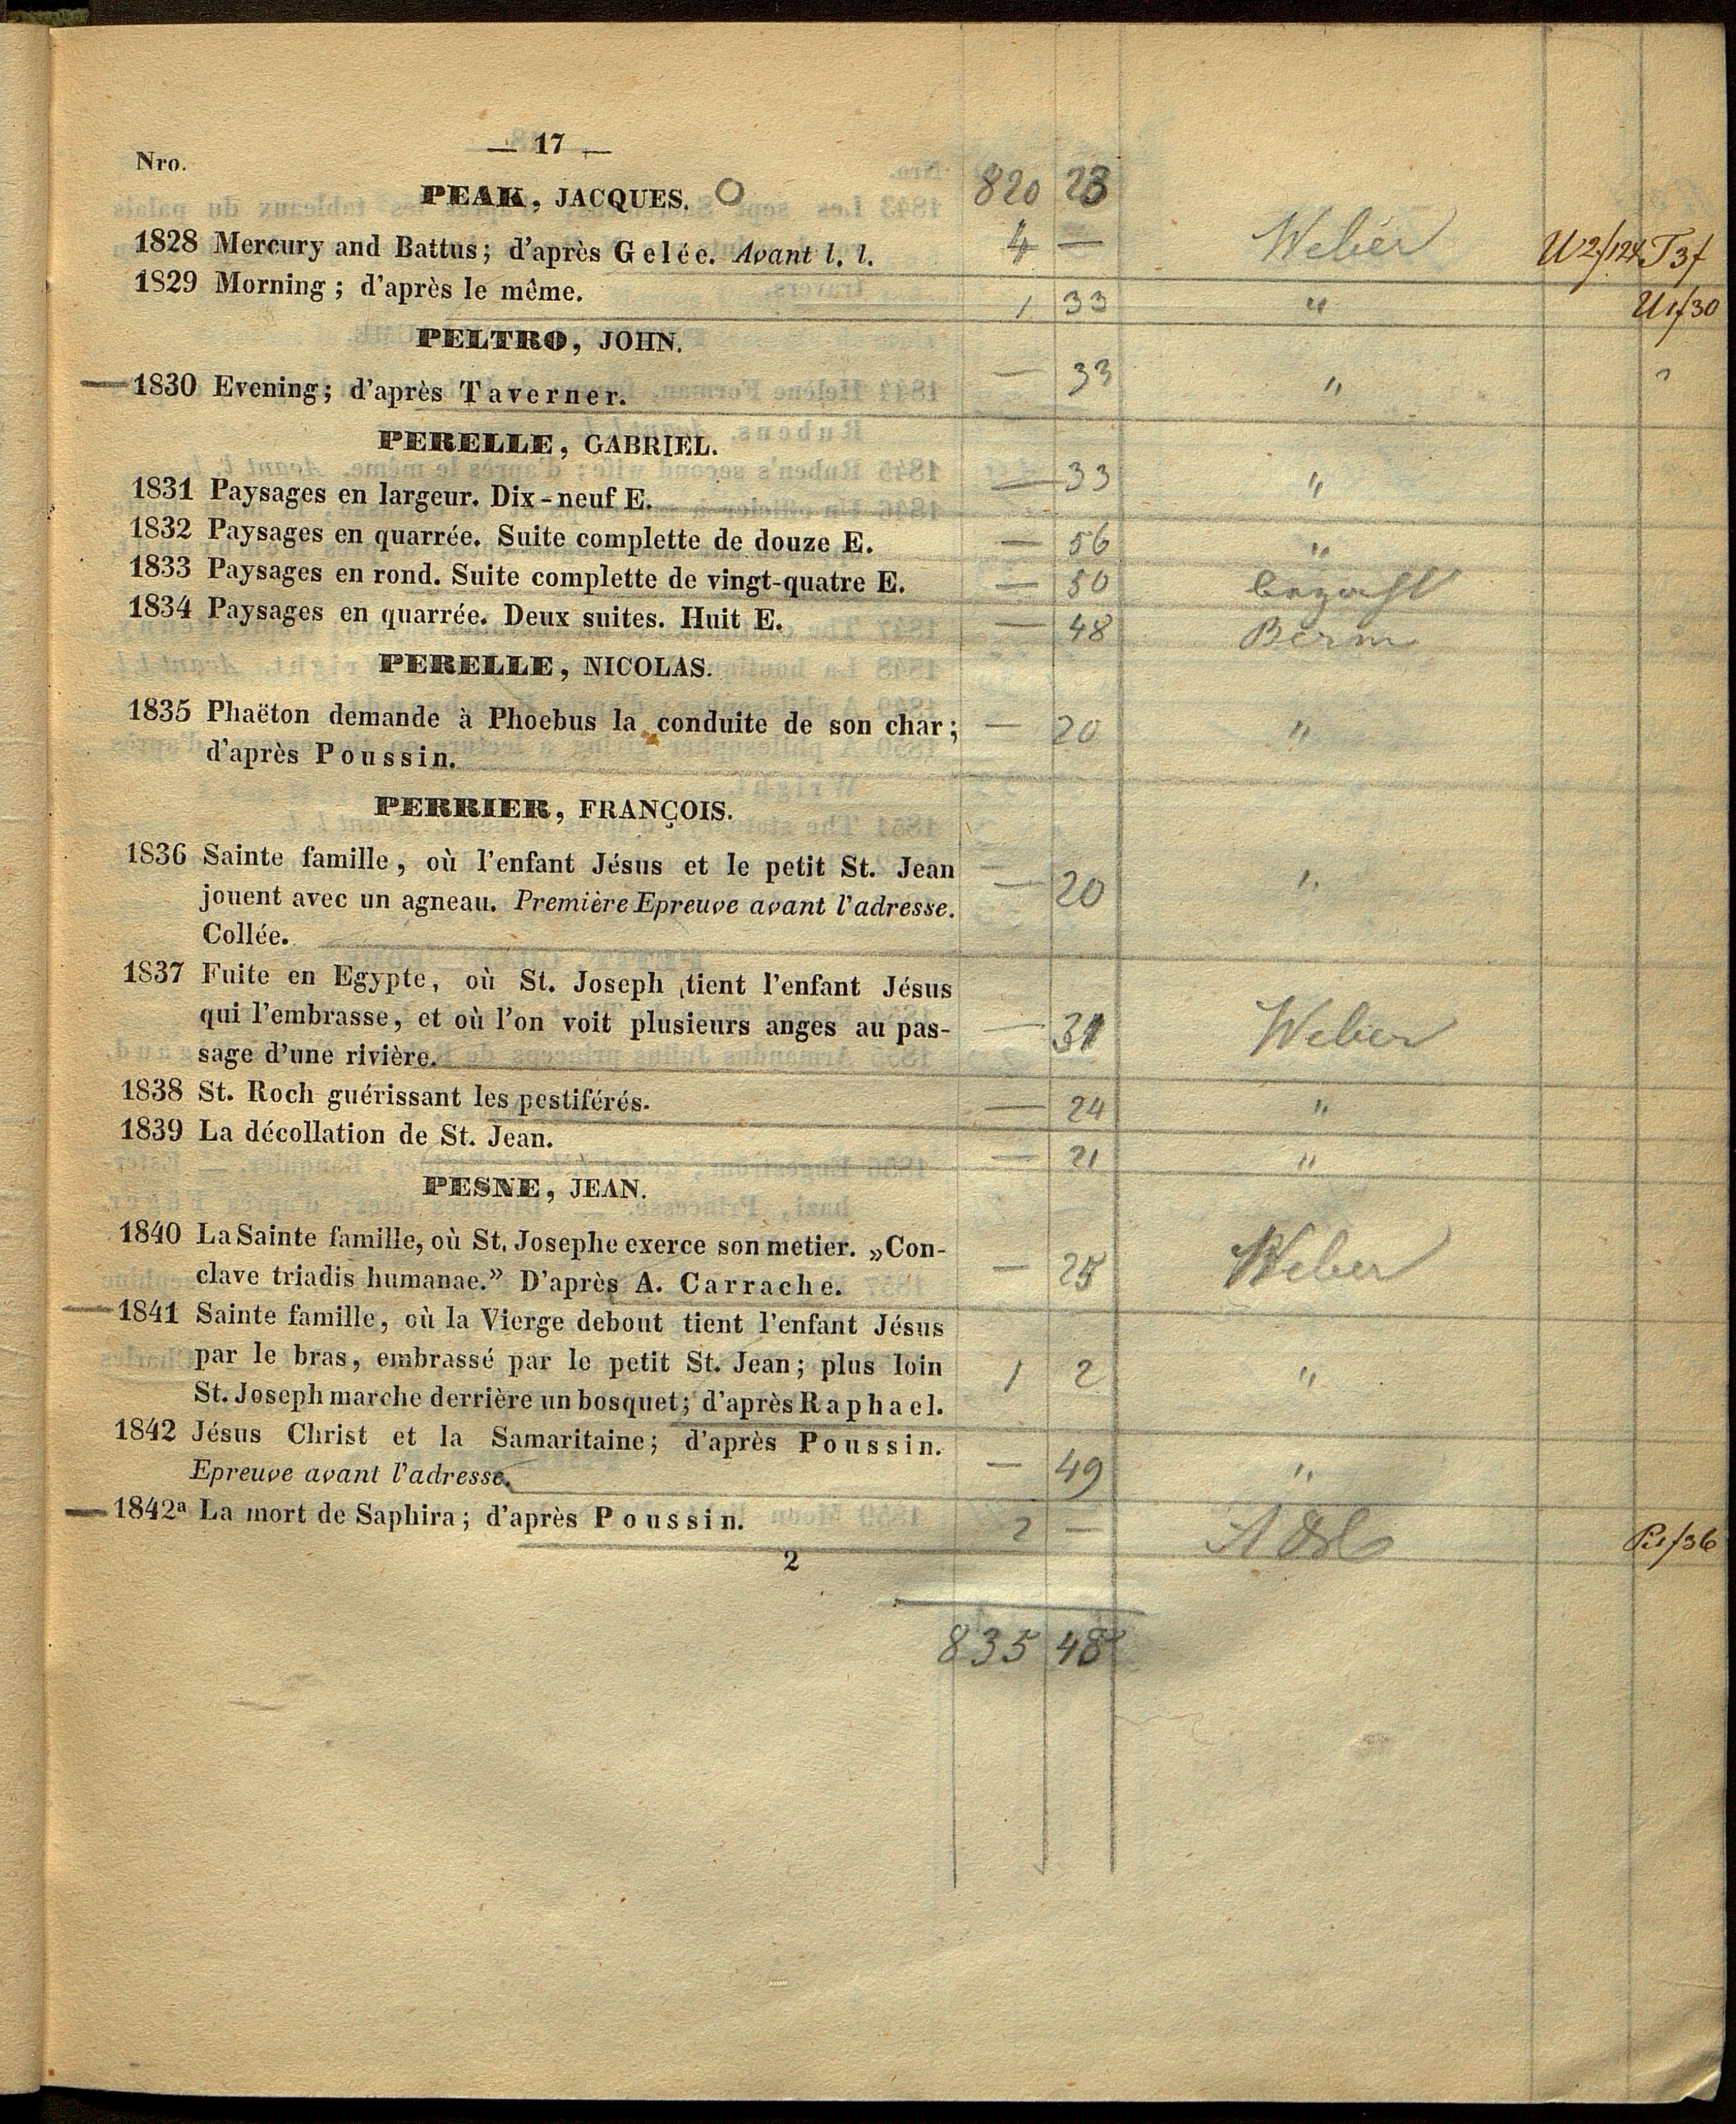 — 17 —
Nro.
PEAK, JACQUES. O 820 23
1828 Mercury and Battus; d'après Gelée. Avant l. l. 4 — Weber U2f/124 T3f
1829 Morning; d'après le même. 1 33 " U1f/30
PELTRO, JOHN.
— 1830 Evening; d'après Taverner. — 33 "
PERELLE, GABRIEL.
1831 Paysages en largeur. Dix-neuf E. — 33 "
1832 Paysages en quarrée. Suite complette de douze E. — 56 "
1833 Paysages en rond. Suite complette de vingt-quatre E. — 50
1834 Paysages en quarrée. Deux suites. Huit E. — 48
PERELLE, NICOLAS.
1835 Phaëton demande à Phoebus la conduite de son char; — 20 "
d'après Poussin.
PERRIER, FRANÇOIS.
1836 Sainte famille, où l'enfant Jésus et le petit St. Jean
jouent avec un agneau. Première Epreuve avant l'adresse. — 20 "
Collée.
1837 Fuite en Egypte, où St. Joseph tient l'enfant Jésus
qui l'embrasse, et où l'on voit plusieurs anges au pas- — 31 Weber
sage d'une rivière.
1838 St. Roch guérissant les pestiférés. — 24 "
1839 La décollation de St. Jean. — 21 "
PESNE, JEAN.
1840 La Sainte famille, où St. Josephe exerce son metier. „Con-
clave triadis humanae.” D'après A. Carrache. — 25 Weber
— 1841 Sainte famille, où la Vierge debout tient l'enfant Jésus
par le bras, embrassé par le petit St. Jean; plus loin 1 2 "
St. Joseph marche derrière un bosquet; d'après Raphael.
1842 Jésus Christ et la Samaritaine; d'après Poussin.
Epreuve avant l'adresse. — 49 "
— 1842a La mort de Saphira; d'après Poussin. 2 —
2
835 48